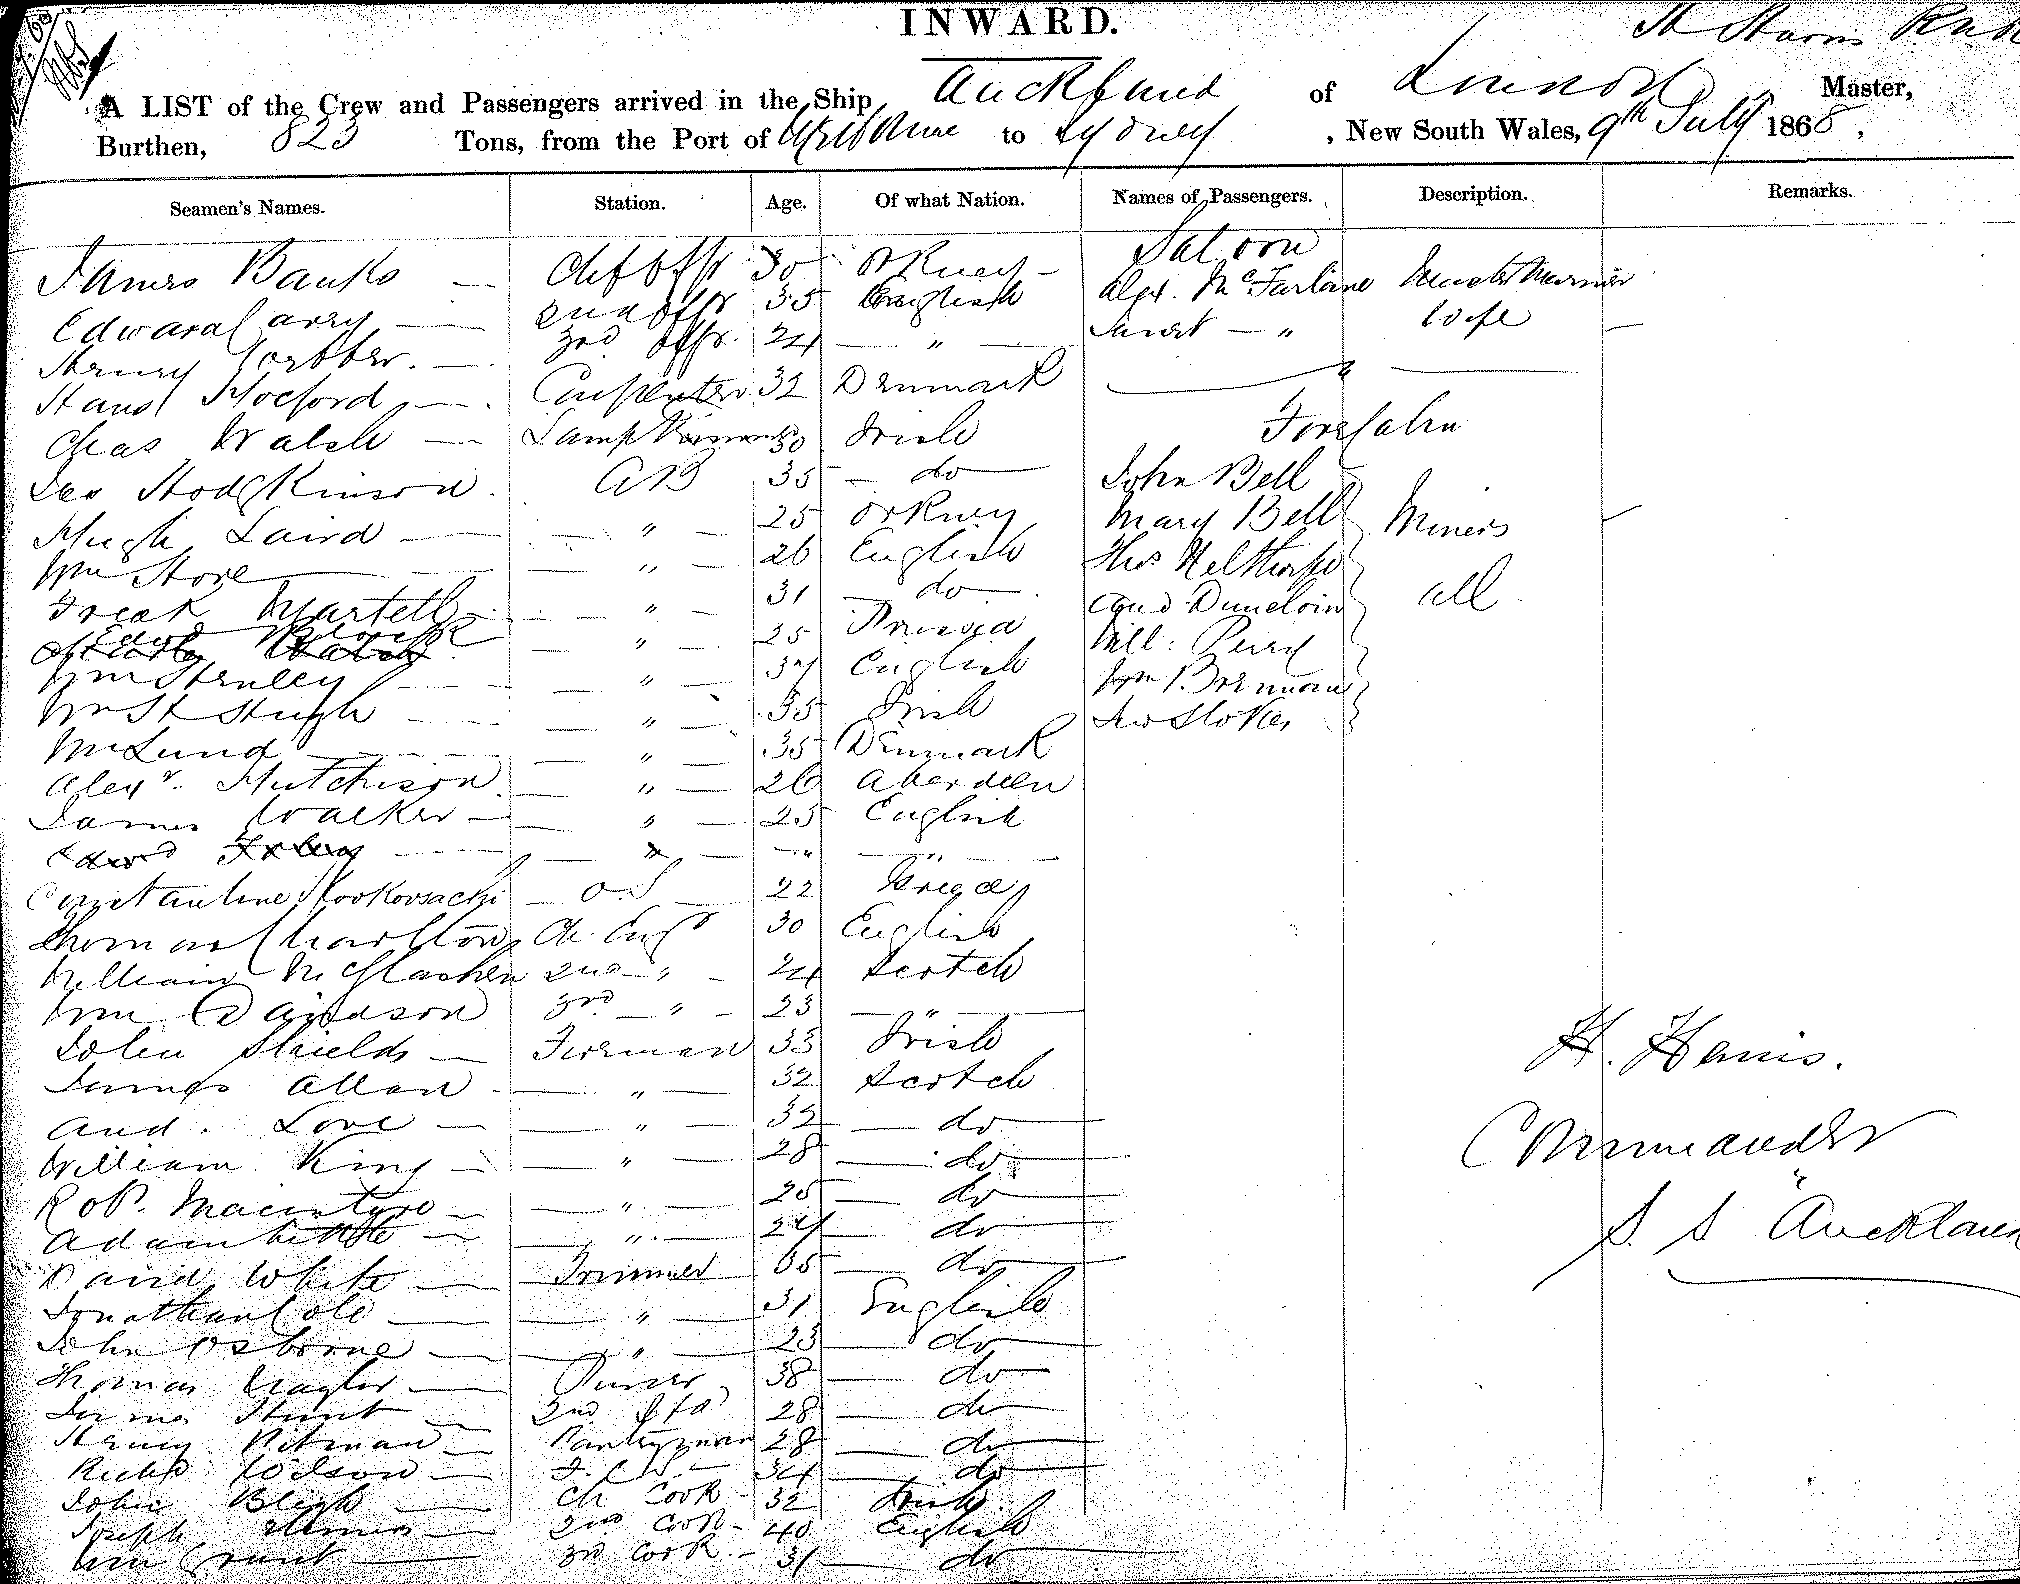 INWARD.
A LIST of the Crew and Passengers arrived in the Ship Auckland of London, Master,
Burthen, 823 Tons, from the Port of Melbourne to Sydney, New South Wales, 9th July 1868.
Seamen's Names. Station. Age. Of what Nation. Names of Passengers. Description. Remarks.
Saloon
James Banks — Chf Offr 30 Orkney — Alex. McFarlane
Edward Carey — 2nd Offr 35 English " Wife
Henry — 3rd Offr. 24 — " —
Hans — Carpenter 32 Denmark
Chas Walsh — Lamp 30 Irish Fore Cabin
Jas Hodgkinson. AB 35 — do — John Bell
Hugh Laird — " — 25 Orkney Mary Bell Miners
Wm Hore — " — 26 English Thos
Fredk Martell — " — 31 — do — And all
Edwd — " — 25 Prussia Will: Perry
Wm Henley — " — 37 English Wm Brennan
Wm St Hugh — " — 35 Irish Stokes
Wm Lund — " — 35 Denmark
Alexr. Hutchison — " — 26 Aberdeen
James Walker — " — 25 English
Edwd — " — " — " —
Constantine — O.S — 22
Thomas Charlton Ch. Engr 30 English
William McGlashen 2nd — " — 24 Scotch
Wm Davidson 3rd — " — 23 — " —
John Shields — Fireman 33 Irish H. Harris.
James Allan — " — 32 Scotch
And. Love — " — 32 — do — Commander
William King — " — 28 — do —
Robt. Macintyre — " — 25 — do — S. S Auckland
Adam — " — 24 — do —
David White — Trimmer 35 — do —
Jonathan Cole — " — 31 English
John Osborne — " — 23 — do —
Thomas — Purser 38 — do —
James Hunt — 2nd Std 28 — do —
Henry Pitman — Pantryman 28 — do —
Richd Wilson — 34 — do —
John Bligh — Ch Cook — 32 Irish
Joseph — 2nd Cook — 40 English
Wm Grant — 3rd Cook — 31 — do —